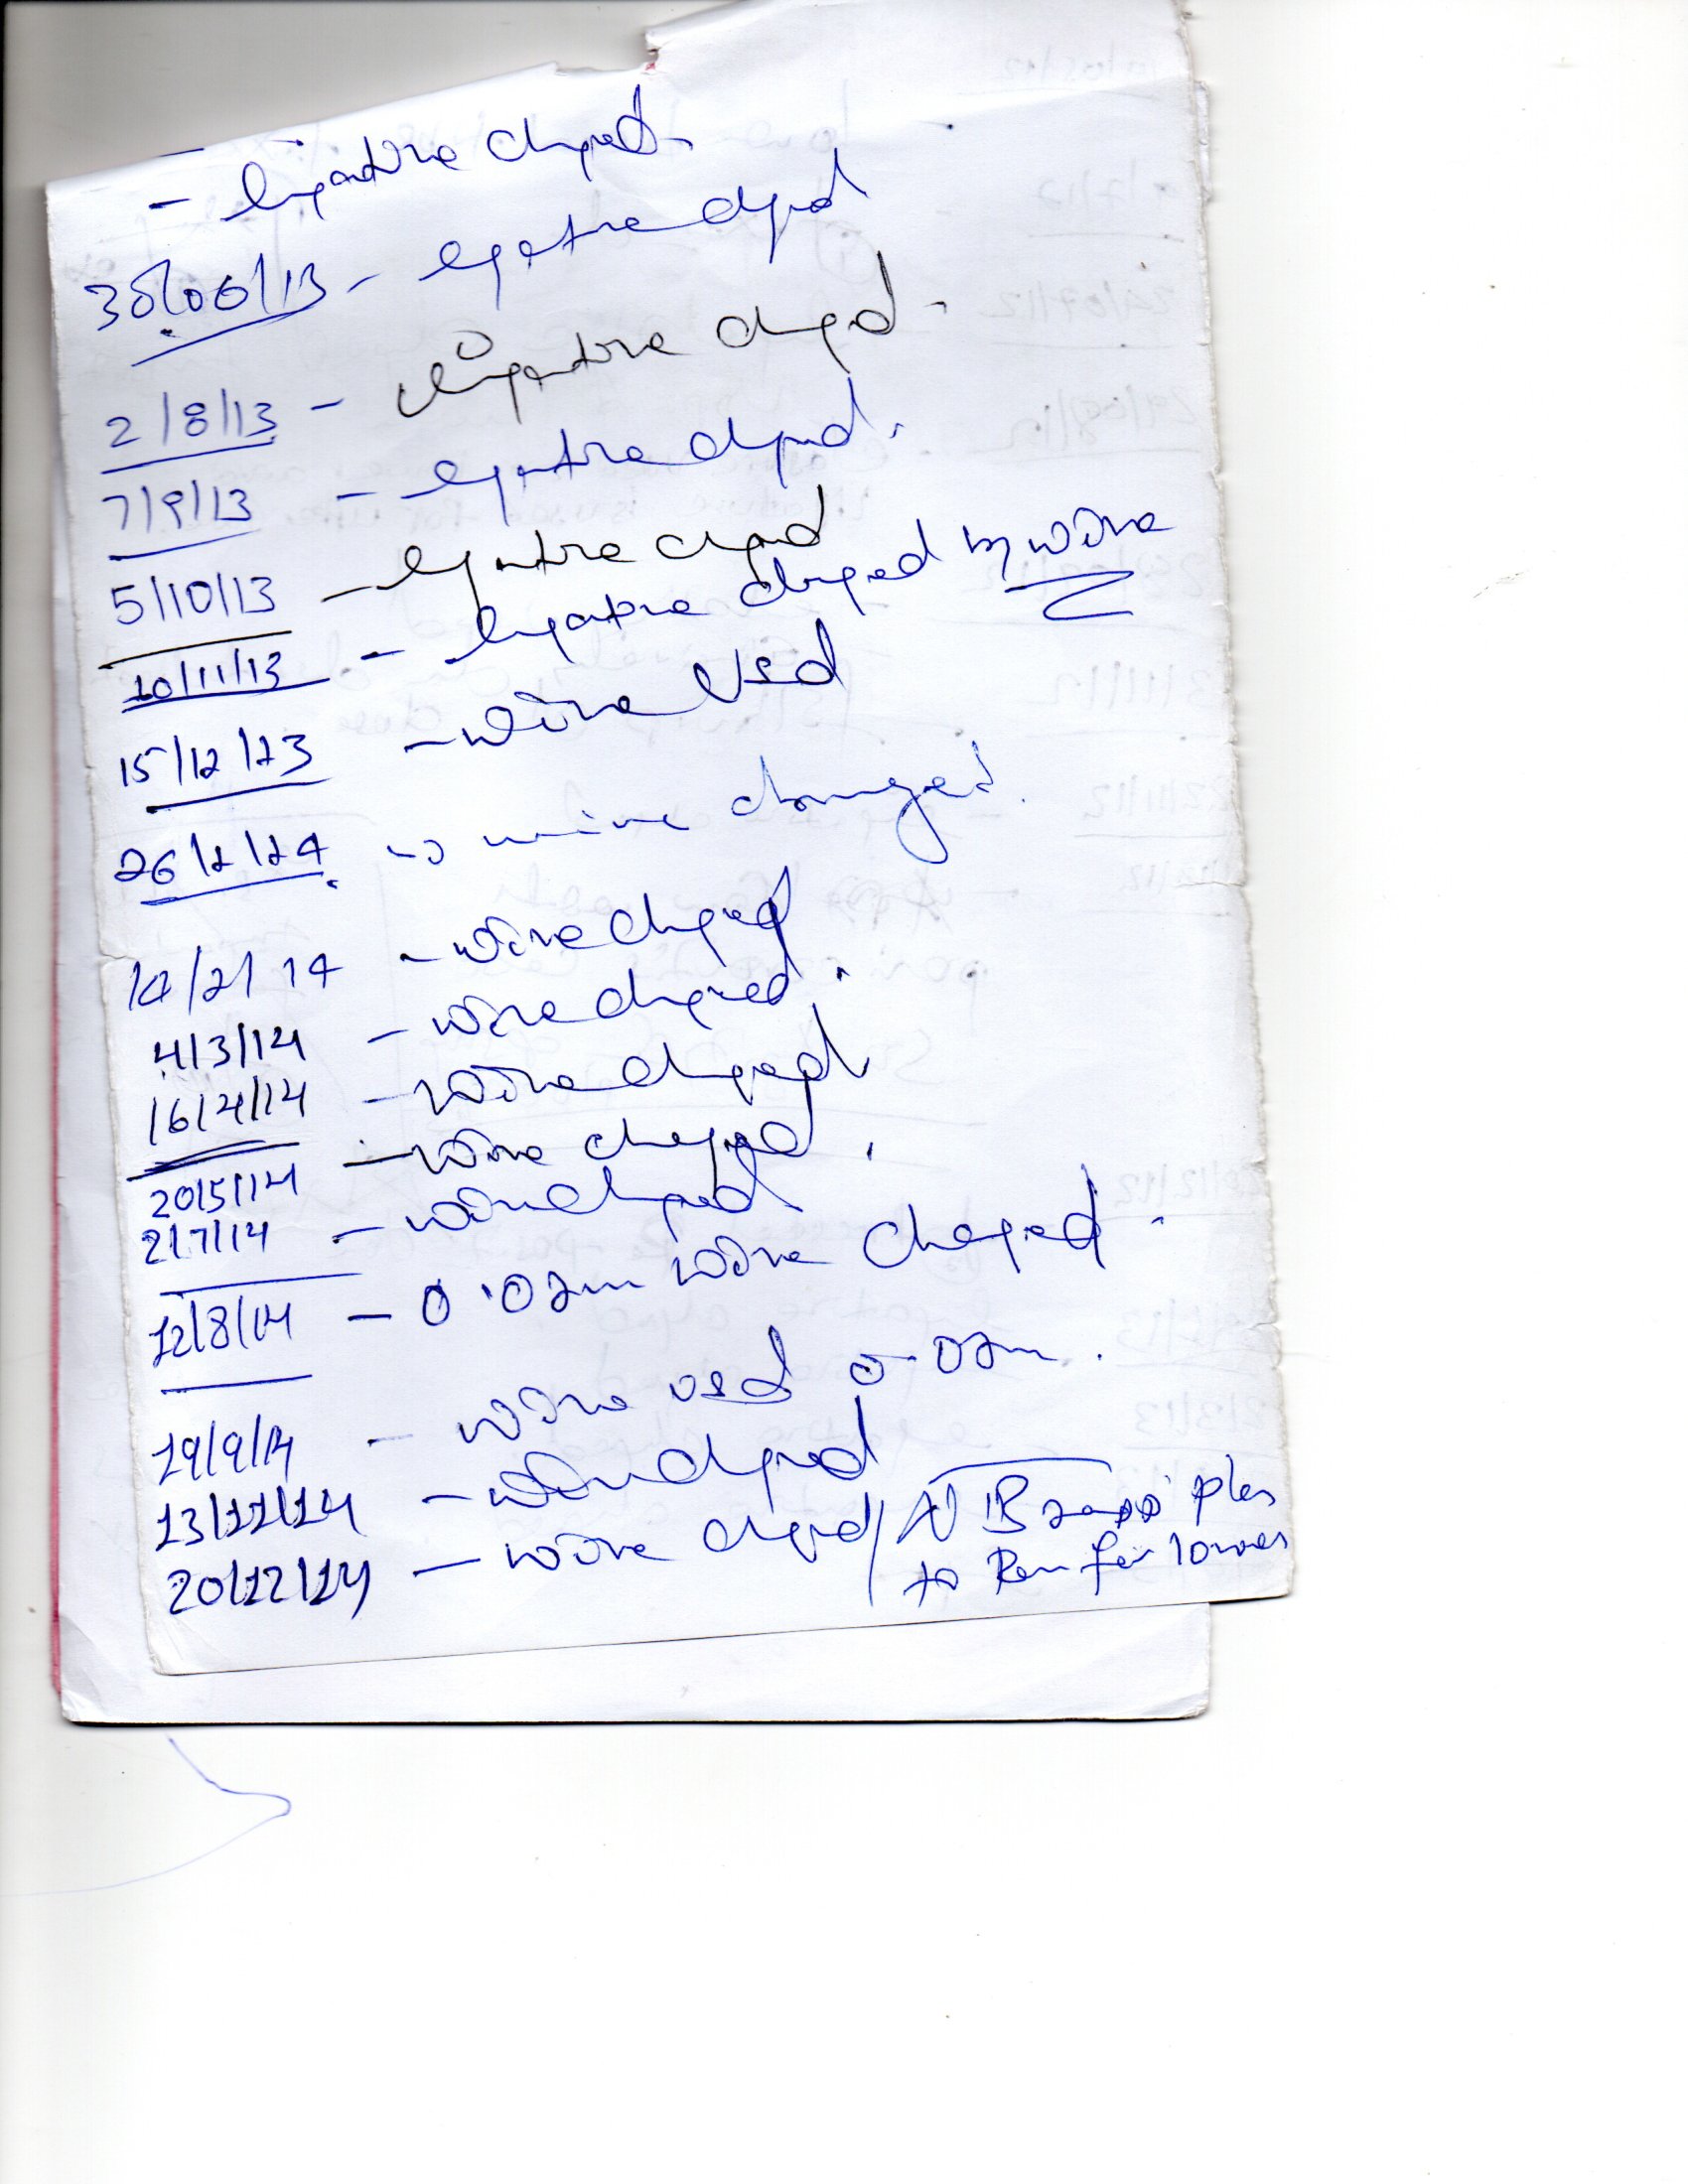 - ligature changed.
30/06/13 - ligature changed
2/8/13 - ligature changed.
7/9/13 - ligature changed.
5/10/13 - ligature changed
10/11/13 - ligature changed in wire
15/12/13 - wire used
26/1/14 -> wire changed.
14/2/14 - wire changed
4/3/14 - wire changed.
16/4/14 - wire changed
20/5/14 - wire changed.
2/7/14 - wire changed.
12/8/14 - 0.02m wire changed.
19/9/14 - wire used 0.02m.
13/11/14 - wire changed
20/12/14 - wire changed / NB
to for lower